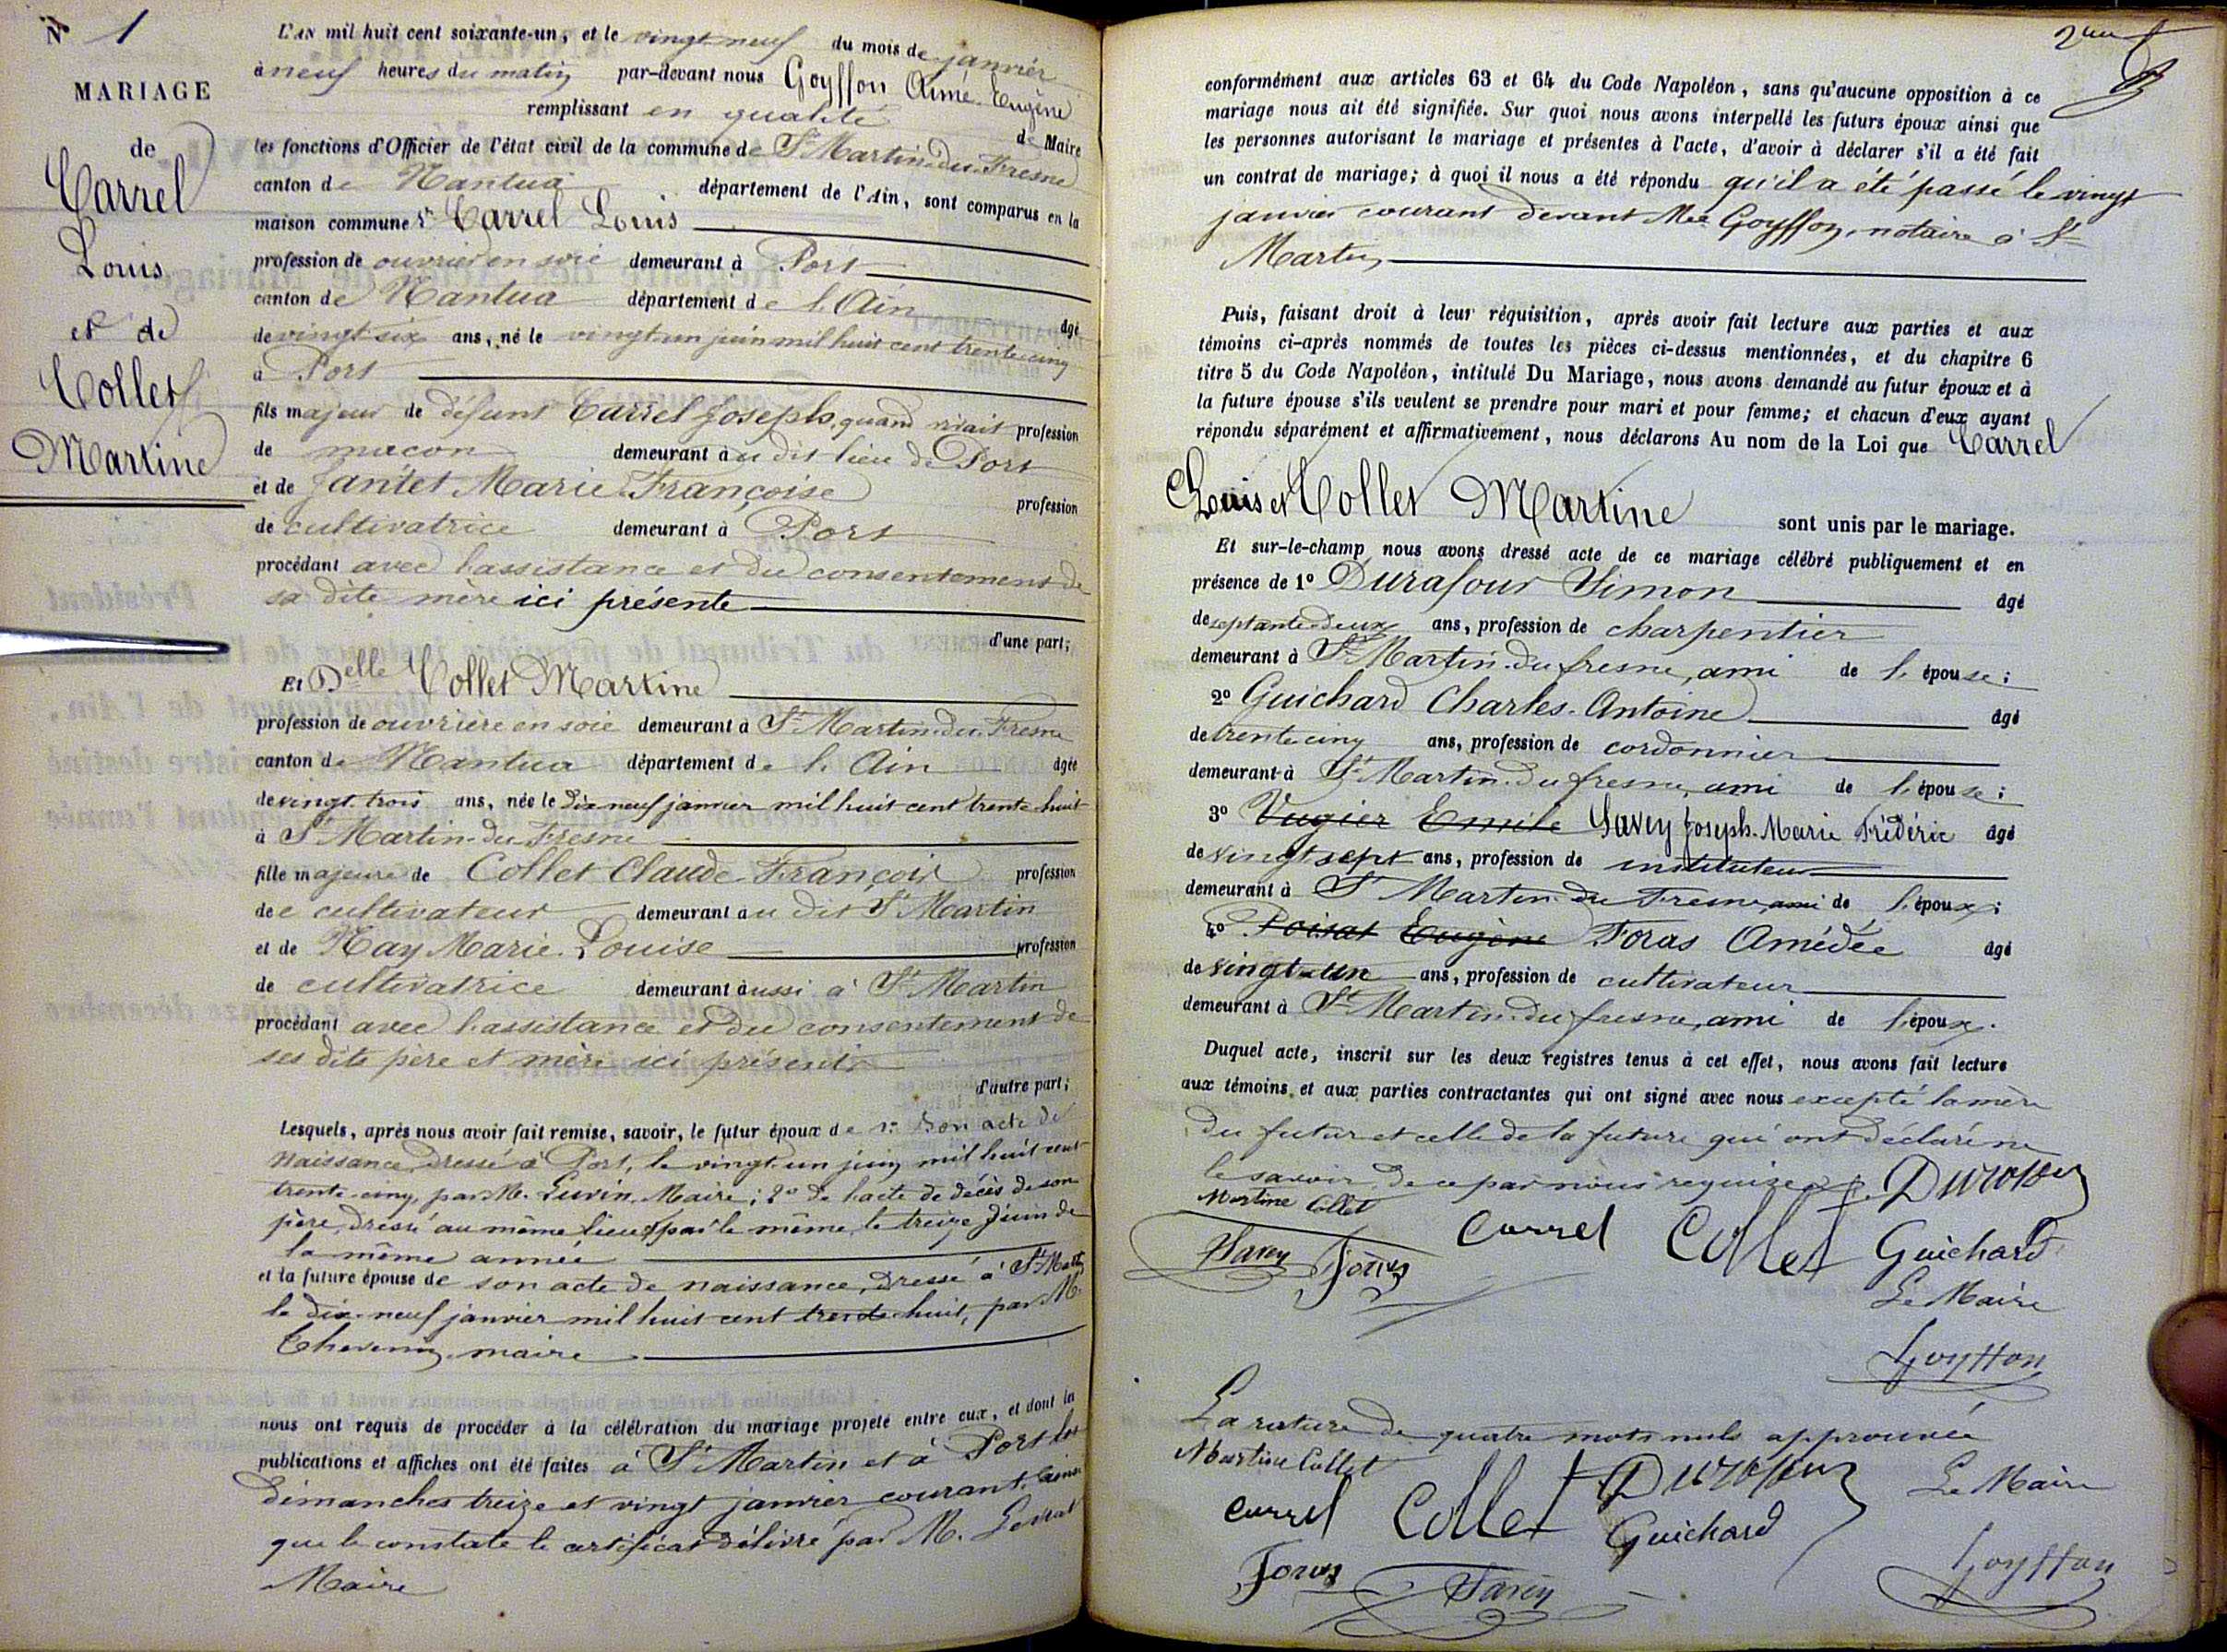 N° 1
MARIAGE
de
Carrel
Louis
et de
Collet
Martine
L'AN mil huit cent soixante-un, et le vingt neuf du mois de janvier
à neuf heures du matin par-devant nous Goyffon Aimé Eugène
remplissant en qualité de Maire
les fonctions d'Officier de l'état civil de la commune de St Martin-du-Fresne
canton de Nantua département de l'Ain, sont comparus en la
maison commune Sr Carrel Louis
profession de ouvrier en soie demeurant à Port
canton de Nantua département de l'Ain âgé
de vingt six ans, né le vingt un juin mil huit cent trente cinq
à Port
fils majeur de défunt Carrel Joseph, quand vivait profession
de maçon demeurant au dit lieu de Port
et de Jantet Marie Françoise profession
de cultivatrice demeurant à Port
procédant avec l'assistance et du consentement de
sa dite mère ici présente
d'une part;
Et Delle Collet Martine
profession de ouvrière en soie demeurant à St Martin-du-Fresne
canton de Nantua département de l'Ain âgée
de vingt trois ans, née le dix neuf janvier mil huit cent trente huit
à St Martin-du-Fresne
fille majeure de Collet Claude-François profession
de cultivateur demeurant au dit St Martin
et de Nay Marie-Louise profession
de cultivatrice demeurant aussi à St Martin
procédant avec l'assistance et du consentement de
ses dits père et mère ici présents
d'autre part;
Lesquels, après nous avoir fait remise, savoir, le futur époux de 1° Son acte de
naissance, dressé à Port, le vingt-un juin mil huit cent
trente-cinq, par M. Maire; 2° de l'acte de décès de son
père, dressé au même lieu par le même, le treize juin de
la même année
et la future épouse de son acte de naissance, dressé à St Martin
le dix-neuf janvier mil huit cent trente-huit, par M.
Thevenin, maire
nous ont requis de procéder à la célébration du mariage projeté entre eux, et dont les
publications et affiches ont été faites à St Martin et à Port les
dimanches treize et vingt janvier courant, ainsi
que le constate le certificat délivré par M.
Maire
2me f
conformément aux articles 63 et 64 du Code Napoléon, sans qu'aucune opposition à ce
mariage nous ait été signifiée. Sur quoi nous avons interpellé les futurs époux ainsi que
les personnes autorisant le mariage et présentes à l'acte, d'avoir à déclarer s'il a été fait
un contrat de mariage; à quoi il nous a été répondu qu'il a été passé le vingt
janvier courant devant Me Goyffon, notaire à St
Martin
Puis, faisant droit à leur réquisition, après avoir fait lecture aux parties et aux
témoins ci-après nommés de toutes les pièces ci-dessus mentionnées, et du chapitre 6
titre 5 du Code Napoléon, intitulé Du Mariage, nous avons demandé au futur époux et à
la future épouse s'ils veulent se prendre pour mari et pour femme; et chacun d'eux ayant
répondu séparément et affirmativement, nous déclarons Au nom de la Loi que Carrel
Louis et Collet Martine sont unis par le mariage.
Et sur-le-champ nous avons dressé acte de ce mariage célébré publiquement et en
présence de 1° Durafour Simon âgé
de septante-deux ans, profession de charpentier
demeurant à St Martin-du-fresne, ami de l'épouse;
2° Guichard Charles-Antoine âgé
de trente cinq ans, profession de cordonnier
demeurant à St Martin-du-fresne, ami de l'épouse;
3° Vugier Emile Savey Joseph-Marie Frédéric âgé
de vingt sept ans, profession de instituteur
demeurant à St Martin-du-Fresne, ami de l'époux;
4° Poisat Eugène Foras Amédée âgé
de vingt-un ans, profession de cultivateur
demeurant à St Martin-du-fresne, ami de l'époux.
Duquel acte, inscrit sur les deux registres tenus à cet effet, nous avons fait lecture
aux témoins et aux parties contractantes qui ont signé avec nous excepté la mère
du futur et celle de la future qui ont déclaré ne
le savoir, de ce par nous requises. Durafour
Martine Collet
Savey Foras Carrel Collet Guichard
Le Maire
Goyffon
La rature de quatre mots nuls approuvée
Martine Collet
Carrel Collet Durafour Le Maire
Guichard
Foras Savey Goyffon